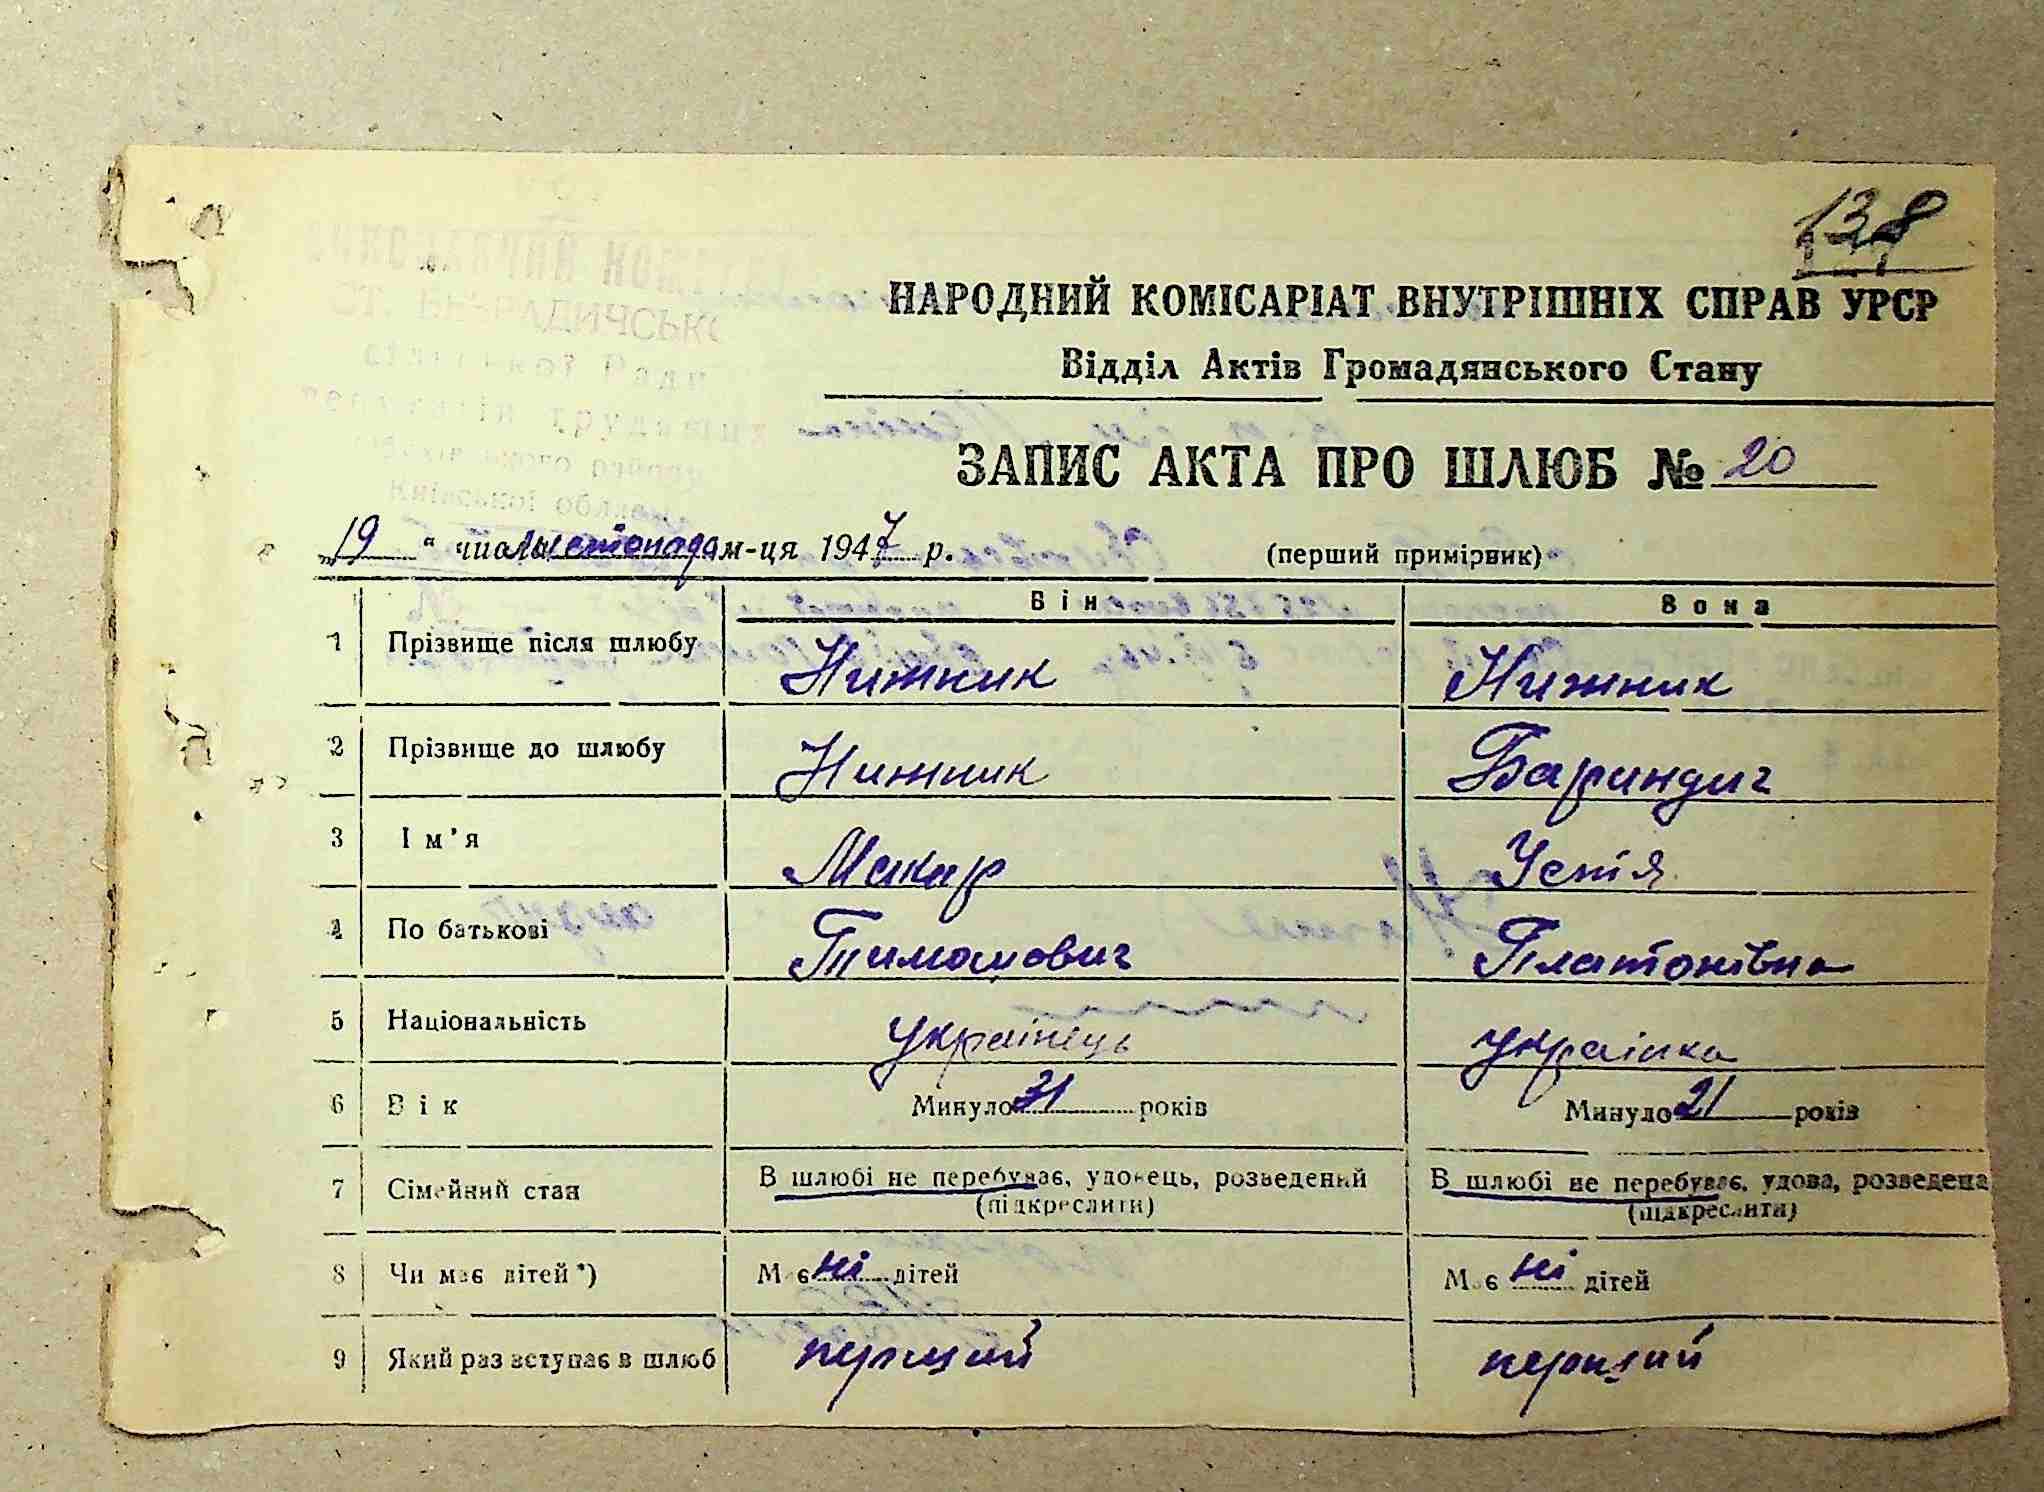 138
НАРОДНИЙ КОМІСАРІАТ ВНУТРІШНІХ СПРАВ УРСР
Відділ Актів Громадянського Стану
ЗАПИС АКТА ПРО ШЛЮБ № 20
„19“ числа листопада м-ця 1947 р. (перший примірник)
Він Вона
1 Прізвище після шлюбу Нижник Нижник
2 Прізвище до шлюбу Нижник Бариндич
3 Ім'я Макар Устія
4 По батькові Тимошович Платонівна
5 Національність українець українка
6 Вік Минуло 31 років Минуло 21 років
7 Сімейний стан В шлюбі не перебуває, удовець, розведений В шлюбі не перебуває, удова, розведена
(підкреслити) (підкреслити)
8 Чи має дітей*) Має ні дітей Має ні дітей
9 Який раз вступає в шлюб перший перший